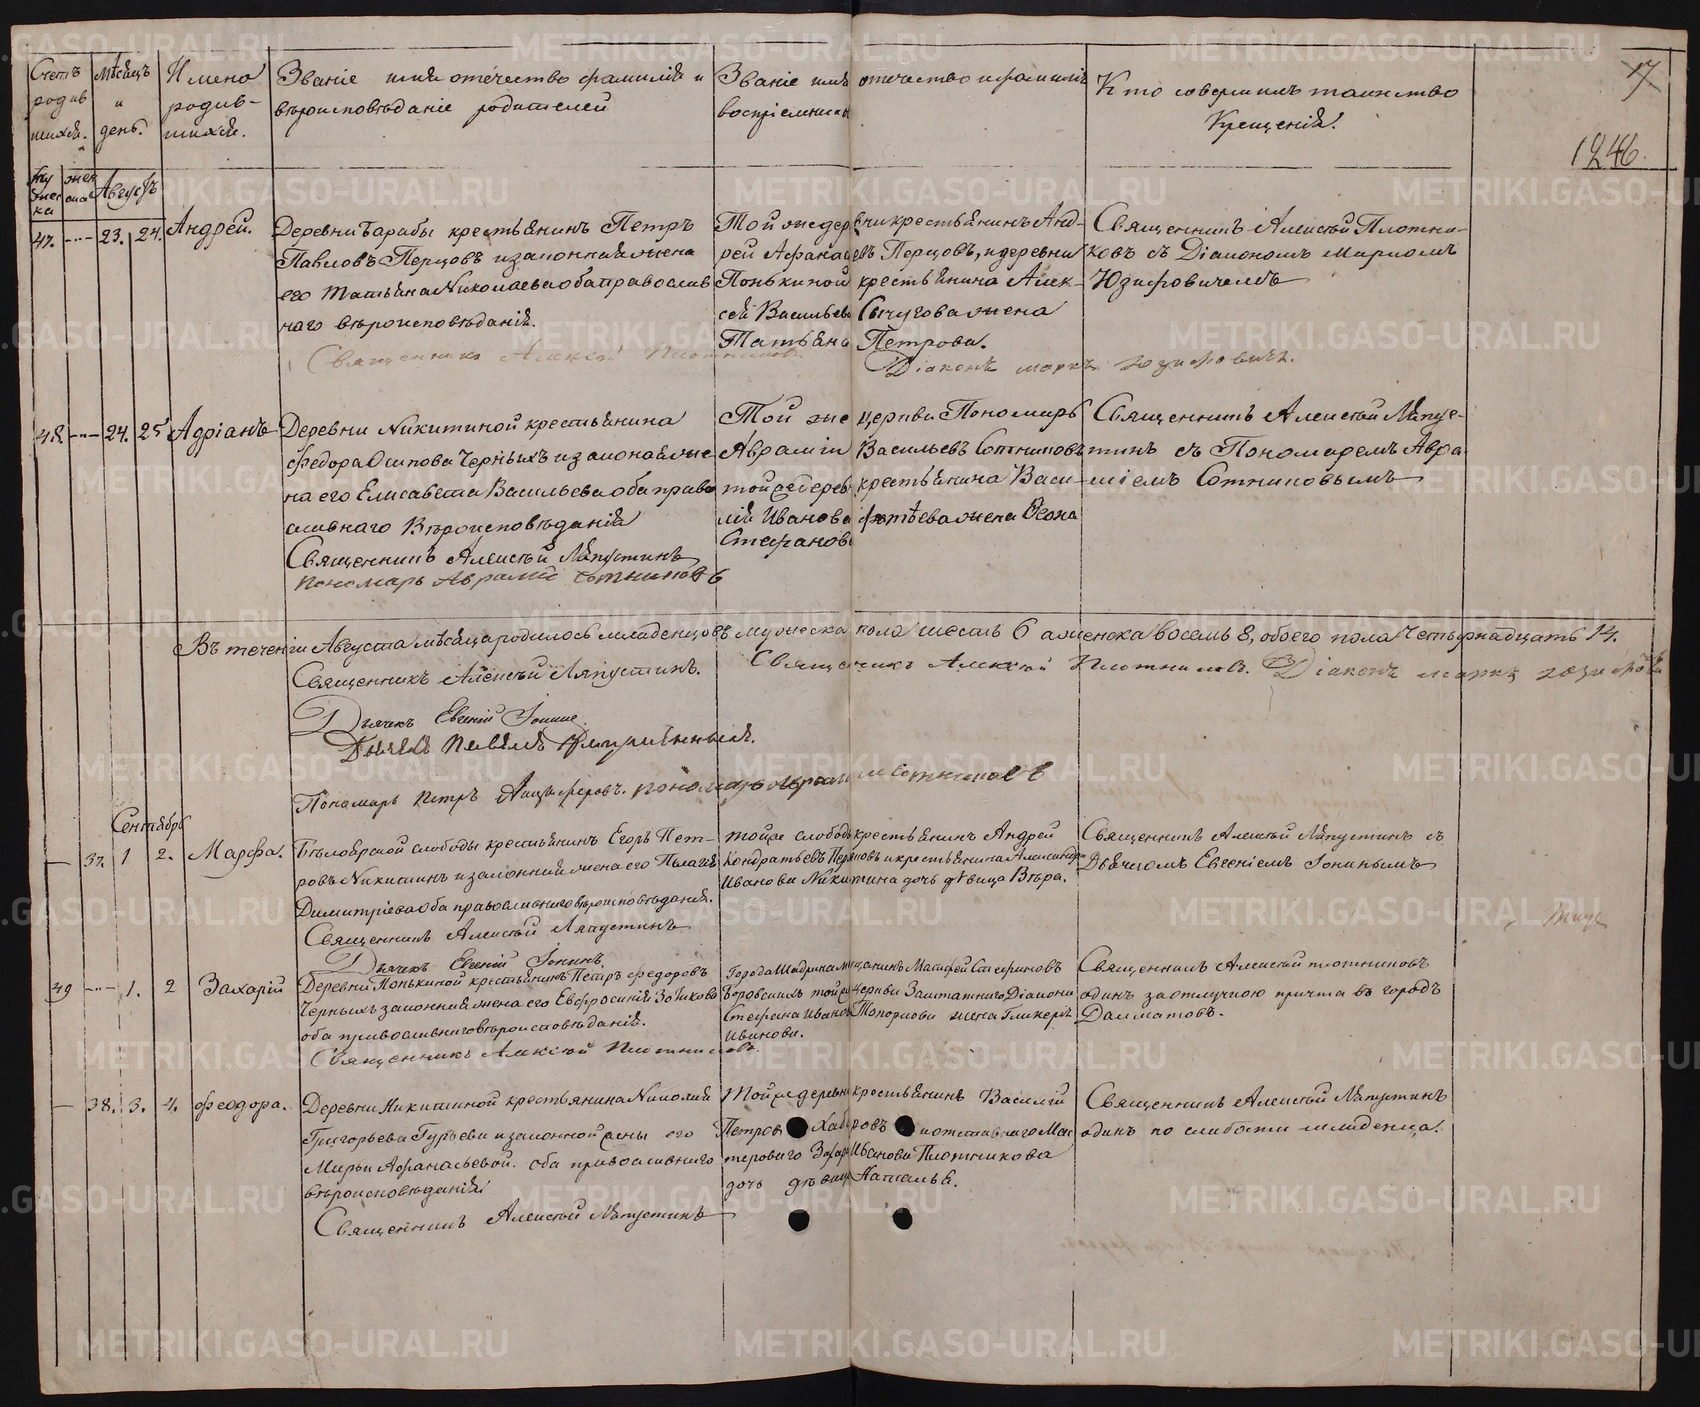 Счетъ родив шихся.
Мѣсяцъ и день.
Имена родив- шихся.
Званіе имя отечество фамилія и
вѣроисповѣданіе родителей
Званіе имя отечество и фамилія
воспріемник
Кто совершилъ таинство
Крещенія.
17
1246.
Му жес ка
жен ска
Августъ
47. 23. 24. Андрей.
Деревни Барабы крестьянинъ Петръ
Павловъ Перцовъ и законная жена
его Татьяна Николаева оба православ
наго вѣроисповѣданія.
Священникъ Алексѣй Плотниковъ
Той же деревни крестьянинъ Анд-
рей Афанасьевъ Перцовъ, и деревни
Понькиной крестьянина Алек-
сѣя Васильева Сычугова жена
Татьяна Петрова.
Діаконъ Маркъ Юзифовичъ.
Священникъ Алексѣй Плотни-
ковъ съ Діакономъ Маркомъ
Юзифовичемъ
48. 24. 25 Адріанъ
Деревни Никитиной крестьянина
Федора Осипова Черныхъ и законная же
на его Елисавета Васильева оба право
славнаго вѣроисповѣданія
Священникъ Алексѣй Ляпустинъ
Пономарь Аврамій Сотниковъ
Той же церкви Пономарь
Аврамій Васильевъ Сотниковъ
той же дерев крестьянина Васи-
лія Иванова жена
Стефанов
Священникъ Алексѣй Ляпус-
тинъ съ Пономаремъ Авра-
міемъ Сотниковымъ
Въ теченіи Августа мѣсяца родилось младенцовъ мужеска пола шесть 6 а женска восемь 8, обоего пола четырнадцать 14.
Священникъ Алексѣй Ляпустинъ. Священникъ Алексѣй Плотниковъ. Діаконъ Маркъ Юзифовичъ
Дьячекъ Евгеній Іонинъ.
Дьячекъ Павелъ
Пономарь Петръ Анцыферовъ. Пономарь Аврамій Сотниковъ
Сентябрь
37. 1 2. Марфа.
Бѣлоярской слободы крестьянинъ Егоръ Пет-
ровъ Никитинъ и законная жена его Пелагея
Димитріева оба православнаго вѣроисповѣданія.
Священникъ Алексѣй Ляпустинъ
Дьячекъ Евгеній Іонинъ
той же слободы крестьянинъ Андрей
Кондратьевъ и крестьянина Александра
Иванова Никитина дочь дѣвица Вѣра.
Священникъ Алексѣй Ляпустинъ съ
Дьячкомъ Евгеніемъ Іонинымъ
49 1. 2 Захарій
Деревни Понькиной крестьянинъ Петръ Федоровъ
Черныхъ законная жена его Евфросинія Зотикова
оба православнаго вѣроисповѣданія.
Священникъ Алексѣй Плотниковъ.
Города Шадринска мѣщанинъ Матфей Стефановъ
Боровскихъ той же церкви Заштатнаго Діакона
Стефана Иванов Топоркова жена Гликерія
Иванова.
Священникъ Алексѣй Плотниковъ
одинъ за отлучкою причта въ городъ
Далматовъ.
38. 3. 4. Феодора.
Деревни Никитиной крестьянина Николай
Григорьева Гурьева и законной жены его
Марьи Афанасьевой. оба православнаго
вѣроисповѣданія
Священникъ Алексѣй Ляпустинъ
Той же деревни крестьянинъ Василій
Петров Хабаровъ и отставнаго Мас
тероваго Иванова Плотникова
дочь дѣвица Наталья.
Священникъ Алексѣй Ляпустинъ
одинъ по слабости младенца.
METRIKI.GASO-URAL.RU